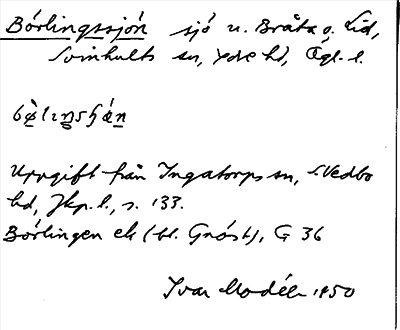 Bórlingssjón sjö u. Bråta o. Lid,
Svinhults sn, Ydre hd, Ögl. l.
Uppgift från Ingatorps sn, S. Vedbo
hd, Jkp. l., s. 133.
Börlingen ek (bl. Gnöst), G 36
Ivar Modéer 1950